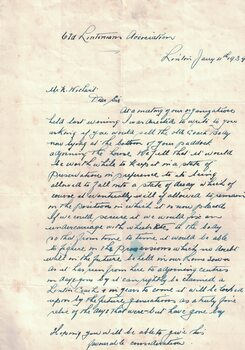 Old Lintonians Association
Linton Jany 11th 1934
Mr. N. Wickert
Dear Sir
At a meeting of our organization
held last evening I was directed to write to you
asking if you would sell the old Coach body
now lying at the bottom of your paddock
adjoining the house. We felt that it would
be worth while to keep it in a state of
preservation in preference to it being
allowed to fall into a state of decay which of
course it eventually will if allowed to remain
in the position in which it is now placed
If we could secure it we would give an
undercarriage with wheels to the body
so that from time to time it would be able
to figure in the Processions which no doubt
will in the future be held in our home town
As it has run from here to adjoining centres
in days gone by it can rightly be claimed a
Linton Coach & in years to come it will be looked
upon by the future generations as a truly fine
relic of the days that were but have gone by
Hoping you will be able to give this
favourable consideration